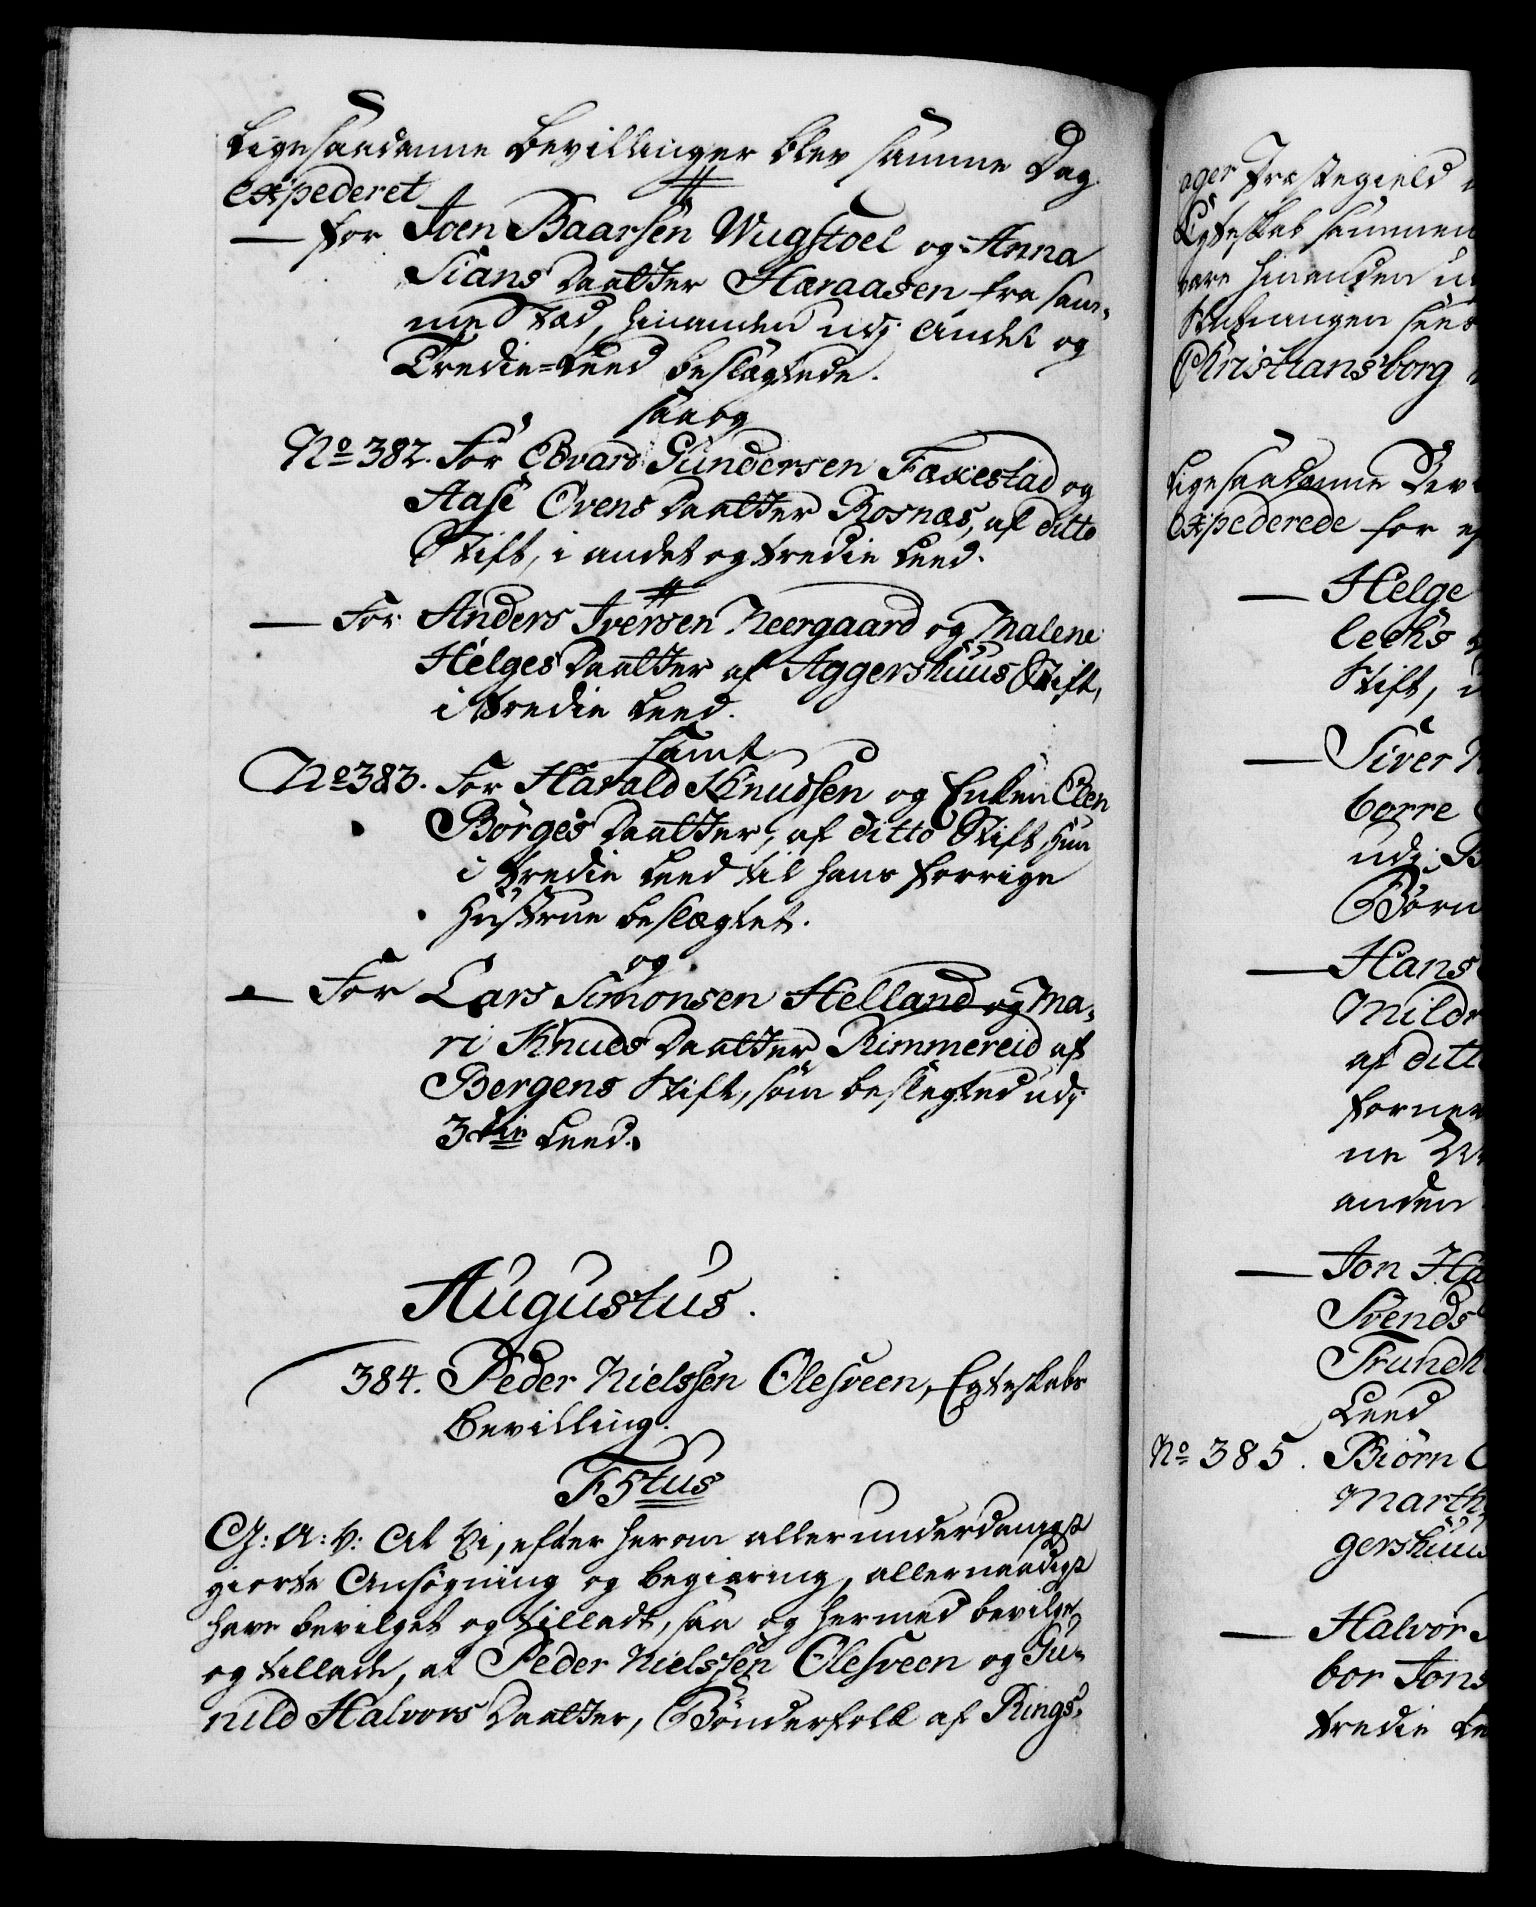 Ligesaadanne Bevillinger blev samme Dag
expederet
— for Joen Baarsen Wugstoel og Anna
Sians Daatter Haraasen fra sam-
me Stæd, hinanden udj andet og
Tredie-Leed beslægtede.
saa og
No 382. For Edvard Gundersen Faxestad og
Aase Evens Daatter Rosnæs, af ditto
Stift, i andet og tredie Leed.
— For Anders Iversen Neergaard og Malene
Helges Daatter af Aggershuus Stift,
i tredie Leed.
samt
No 383. For Harald Knudsen og Enken Elen
Børges Daatter, af ditto Stift hun
i tredie Leed til hans forrige
Hustrue beslægtet.
og
— For Lars Simonsen Helland og Ma-
ri Knuds Daatter Rimmereid af
Bergens Stift, som beslegted udj
3die Leed.
Augustus.
384. Peder Nielssen Olesveen, Egteskabs
Bevilling.
F5tus
G: A: V: At Vi, efter herom allerunderdanigst
giorte Ansøgning og begiæring, allernaadigst
have bevilget og tilladt, saa og hermed bevilge
og tillade, at Peder Nielssen Olesveen og Gu-
nild Halvors Daatter, Bønderfolk af Rings-
ager Præstegield
Egteskab sammen
vare hinanden u
Stavanger
Christiansborg
Ligesaadanne Bev
expederede for
— Helge
lechs
Stift,
— Siver N
borre
udj B
Børn
— Hans
Mildr
af ditt
forne
ne
anden
— Jon Ha
Svends
Trundh
Leed
No 385. Biørn
Marth
gershuus
— Halvor
bor Jons
tredie Le